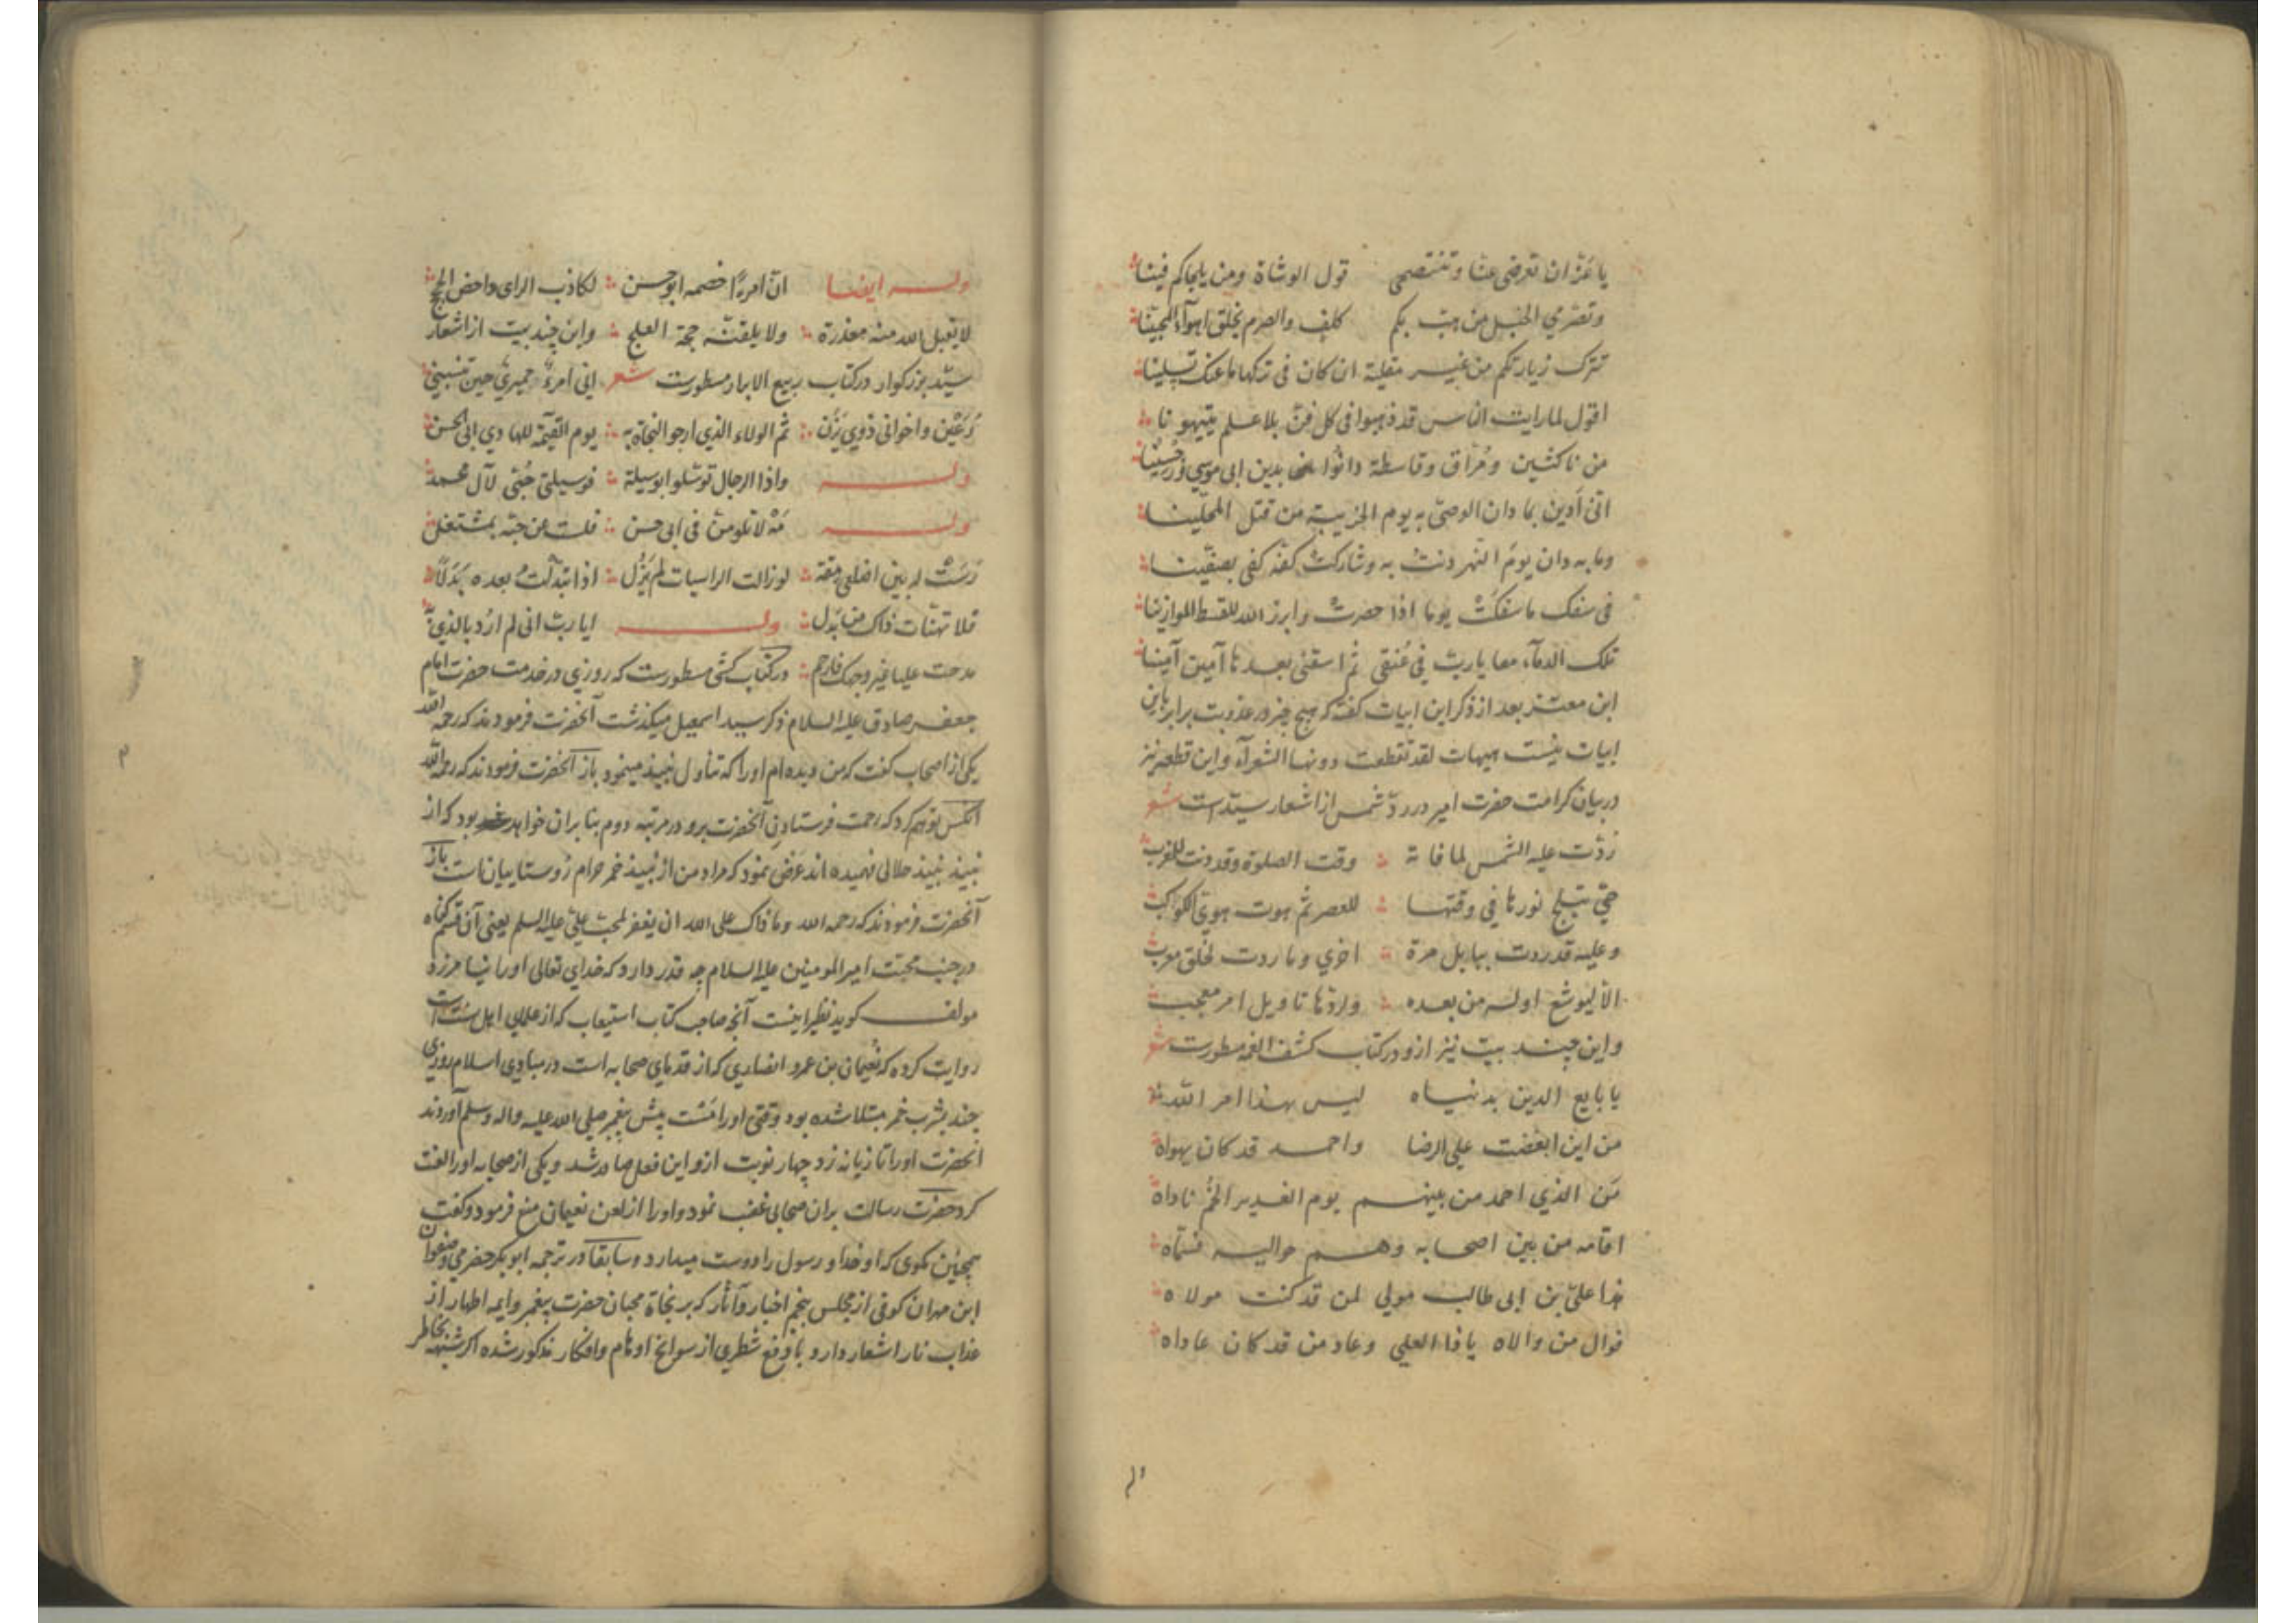 یا عَزّ ان تعرضی عنّا وتنتصحی قول الوشاة ومن یلحاکم فینا
وتصرمی الحبل من صبّ بکم کلف والصرم یخلق اهوآء المحبّینا
نترک زیارتکم من غیر مقلیة ان کان فی ترکها ما عنک یسلینا
اقول لما رایت الناس قد ذهبوا فی کل فنّ بلا علم یتیهونا
من ناکثین ومُرّاق وقاسطة دانُوا بدین ابی موسی
انّی اَدین بما دان الوصیّ به یوم الخریبة من قتل المحلّینا
وما به دان یومَ النّهر دنتُ به وشارکتْ کفّه کفی بصفّینا
فی سفک ما سفکَتْ یوما اذا حضرت وابرز الله للقسط الموازینا
تلک الدمآء معا یا ربّ فی عُنقی ثم اسقنی بعدها آمین آمینا
ابن معتز بعد از ذکر این ابیات گفته که هیچ چیز در عذوبت برابر باین
ابیات نیست هیهات لقد تقطعت دونها الشعرآء واین قطعه نیز
در بیان کرامت حضرت امیر در ردّ شمس از اشعار سیّد است شعر
رُدّت علیه الشمس لما فاته وقت الصلوة وقد دنت للمغرب
حتی تبلج نورها فی وقتها للعصر ثم هوت هویّ الکوکب
وعلیه قد ردت ببابل مرة اخری وما ردت لخلق معرب
الا لیوشع اوله من بعده ولردّها تاویل امر معجب
واین چند بیت نیز ازو در کتاب کشف الغمه مسطورست شعر
یا بایع الدین بدنیاه لیس بهذا امر اللّه
من این ابغضت علی الرضا واحمد قد کان یهواه
مَن الذی احمد من بینهم یوم الغدیر الخُم ناداه
اقامه من بین اصحابه وهم حوالیه فسمّاه
هذا علیّ بن ابی طالب مولی لمن قد کنت مولاه
فوال من والاه یا ذا العلی وعاد من قد کان عاداه
وله ایضا انّ امرءًا خصمه ابو حسن لکاذب الرای داحض الحجج
لا یقبل الله منه معذرة ولا یلقنّه حجة الفلج واین چند بیت از اشعار
سیّد بزرکوار در کتاب ربیع الابرار مسطورست شعر انی امرءٌ حمیریّ حین تنسبنی
رُعَیْن واخوانی ذوی یَزَن ثم الولاء الذی ارجو النجاة به یوم القیمة للهادی ابی الحسن
وله واذا الرجال توسّلوا بوسیلة فوسیلتی حُبّی لآل محمد
وله مَهْ لا تلومنّ فی ابی حسن فلست عن حبّه بمشتغل
رَسَتْ له بین اضلعی مِقة لو زالت الراسیات لم یَزُل اذا تبدّلتُ بعده بَدَلًا
فلا تهنّات ذاک من بَدَل وله ایا ربّ انی لم اُرد بالذی به
مدحت علیا غیر وجهک فارحم در کتاب کشّی مسطورست که روزی در خدمت حضرت امام
جعفر صادق علیه السلام ذکر سید اسمعیل میکذشت آنحضرت فرمودند که رحمه اللّه
یکی از اصحاب گفت که من دیده ام او را که تناول نبیذ مینمود باز آنحضرت فرمودند که رحمه اللّه
آنکس توهم کرد که رحمت فرستادن آنحضرت برو در مرتبه دوم بنا بران خواهد بود که از
نبیذ نبیذ حلالی فهمیده اند عرض نمود که مراد من از نبیذ خمر حرام روستاییان است باز
آنحضرت فرمودند که رحمه الله وما ذاک علی الله ان یغفر لمحبّ علیّ علیه السلم یعنی آن قسم کناه
در جنب محبّت امیر المومنین علیه السلام چه قدر دارد که خدای تعالی او را نیامرزد
مولف گوید نظیر اینست آنچه صاحب کتاب استیعاب که از علمای اهل سنّت است
روایت کرده که نُعیمان بن عمرو انصاری که از قدمای صحابه است در مبادی اسلام روزی
چند بشرب خمر مبتلا شده بود وقتی او را مَست پیش پیغمبر صلی الله علیه واله وسلم آوردند
آنحضرت او را تازیانه زد چهار نوبت ازو این فعل صادر شد ویکی از صحابه او را لعنت
کرد حضرت رسالت بران صحابی غضب نمود واو را از لعن نعیمان منع فرمود وگفت
همچنین مگوی که او خدا و رسول را دوست میدارد وسابقا در ترجمه ابو بکر حضرمی وصفوان
ابن مهران کوفی از مجلس پنجم اخبار وآثار که بر نجاة محبان حضرت پیغمبر وایمه اطهار از
عذاب نار اشعار دارد با دفع شطری از سوانح اوهام وافکار مذکور شده اگر شبهه بخاطر